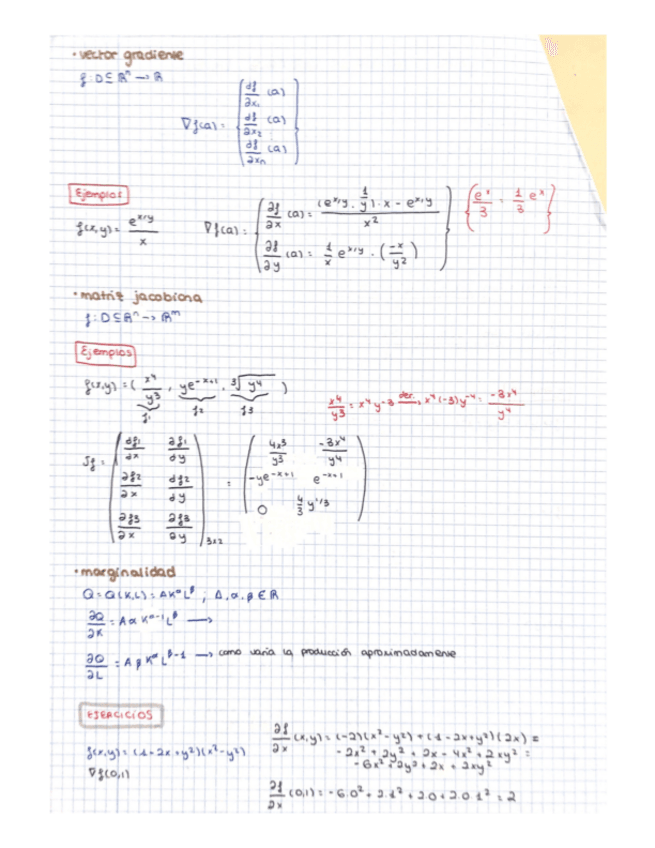 · vector gradiente
f: D ⊆ ℝⁿ → ℝ
∇f(a) = ( ∂f/∂x₁ (a)
∂f/∂x₂ (a)
∂f/∂xₙ (a) )
Ejemplos
f(x,y) = e^(x/y) / x
∇f(a) = ( ∂f/∂x (a) = ((e^(x/y) · 1/y) · x - e^(x/y)) / x²
∂f/∂y (a) = 1/x e^(x/y) · (-x/y²) )
{ e^x/3 = 1/3 e^x }
· matriz jacobiana
f: D ⊆ ℝⁿ → ℝᵐ
Ejemplos
f(x,y) = ( x⁴/y³ , ye^(-x+1) , ³√y⁴ )
f1 f2 f3
x⁴/y³ = x⁴ y-3 der. → x⁴(-3)y⁻⁴ = -3x⁴/y⁴
Jf = ( ∂f1/∂x ∂f1/∂y
∂f2/∂x ∂f2/∂y
∂f3/∂x ∂f3/∂y )3x2
= ( 4x³/y³ -3x⁴/y⁴
-ye^(-x+1) e^(-x+1)
0 4/3 y^(1/3) )
· marginalidad
Q = Q(K,L) = AK^α L^β ; A, α, β ∈ ℝ
∂Q/∂K = Aα K^(α-1) L^β →
∂Q/∂L = Aβ K^α L^(β-1) → como varia la producción aproximadamente
EJERCICIOS
f(x,y) = (1-2x+y²)(x²-y²)
∇f(0,1)
∂f/∂x (x,y) = (-2)(x²-y²) + (1-2x+y²)(2x) =
-2x² + 2y² + 2x - 4x² + 2xy² =
-6x² + 2y² + 2x + 2xy²
∂f/∂x (0,1) = -6·0² + 2·1² + 2·0 + 2·0·1² = 2